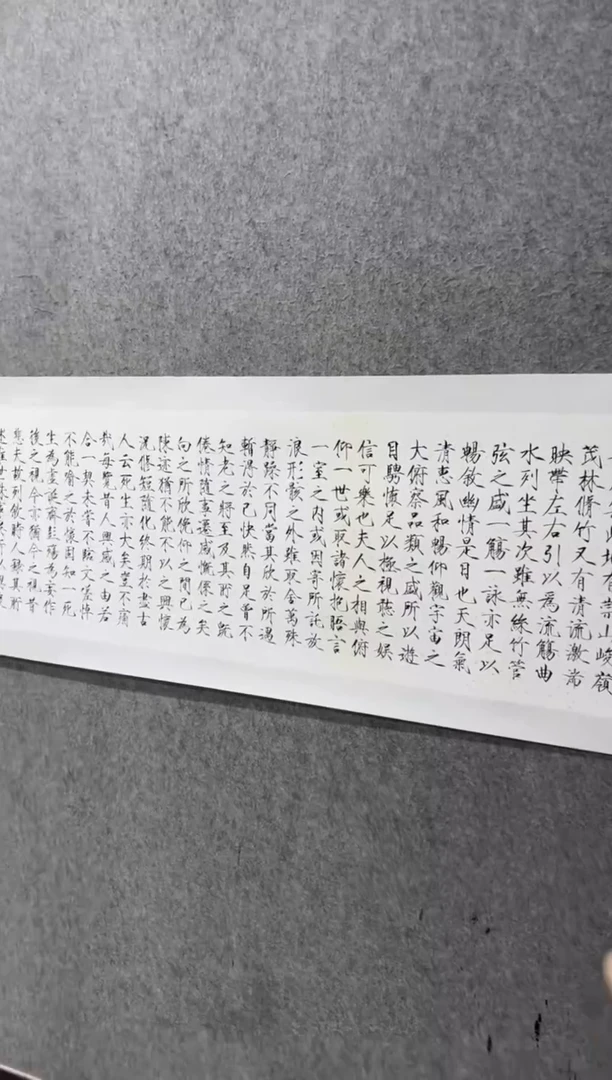 此地有崇山峻嶺
茂林脩竹又有清流激湍
映帶左右引以為流觴曲
水列坐其次雖無絲竹管
弦之盛一觴一詠亦足以
暢敘幽情是日也天朗氣
清惠風和暢仰觀宇宙之
大俯察品類之盛所以遊
目騁懷足以極視聽之娛
信可樂也夫人之相與俯
仰一世或取諸懷抱晤言
一室之內或因寄所託放
浪形骸之外雖取舍萬殊
靜躁不同當其欣於所遇
暫得於己快然自足曾不
知老之將至及其所之既
倦情隨事遷感慨係之矣
向之所欣俛仰之間已為
陳迹猶不能不以之興懷
況脩短隨化終期於盡古
人云死生亦大矣豈不痛
哉每覽昔人興感之由若
合一契未嘗不臨文嗟悼
不能喻之於懷固知一死
生為虛誕齊彭殤為妄作
後之視今亦猶今之視昔
悲夫故列敘時人錄其所